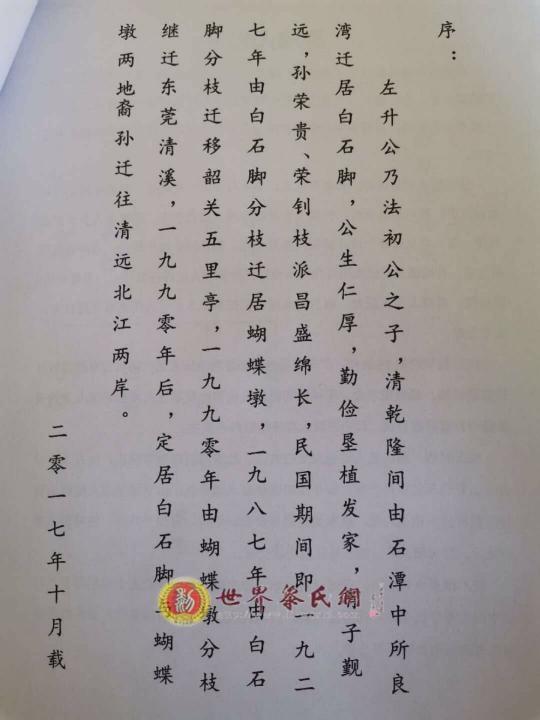 序：
左升公乃法初公之子，清乾隆间由石潭中所良
湾迁居白石脚，公生仁厚，勤俭垦植发家，子觐
远，孙荣贵、荣钊枝派昌盛绵长民国期间即一九二
七年由白石脚分枝迁居蝴蝶墩，一九八七年由白石
脚分枝迁移韶关五里亭，一九九零年由蝴蝶墩分枝
继迁东莞清溪，一九九零年后，定居白石脚 蝴蝶
墩两地裔孙迁往清远北江两岸。
二零一七年十月载
世界 氏網